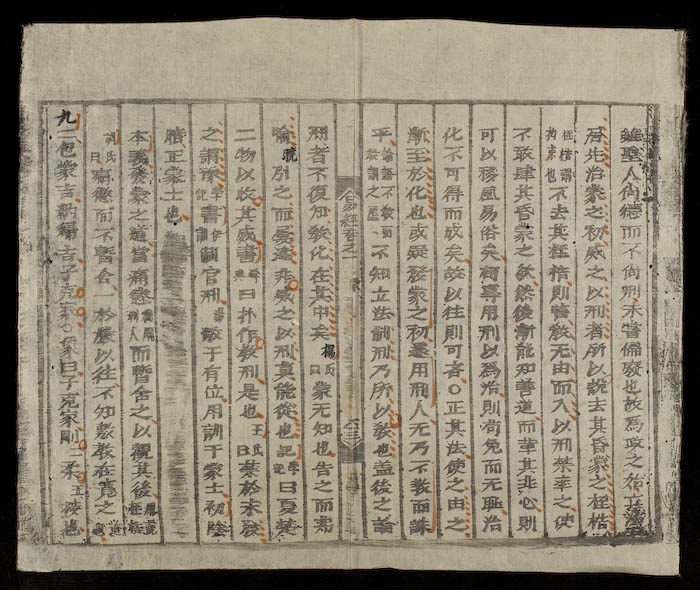 雖聖人尚德而不尚刑未嘗偏廢也故為政之始立法
居先治蒙之初威之以刑者所以說去其昏蒙之桎梏
桎梏謂拘束也不去其桎梏則善教无由而入以刑禁率之使
不敢肆其昏蒙之欲然後漸能知善道而革其非心則
可以移風易俗矣苟專用刑以為治則苟免而无恥治
化不可得而成矣故以往則可吝○正其法使之由之
漸至於化也或疑發蒙之初遽用刑人无乃不教而誅
乎論語不教而殺謂之虐不知立法制刑乃所以教也盖後之論
易經卷之一 蒙 六三
刑者不復知敎化在其中矣楊氏曰蒙无知也告之而弗
喩曉引之而屢違非威之以刑莫能從也記學記曰夏楚
二物以收其威書舜典曰扑作敎刑是也王氏曰禁於未發
之謂豫學記書伊訓制官刑儆于有位用訓于蒙士初陰
暗正蒙士也
本義發蒙之道當痛懲用刑人而暫舍之以觀其後
胡氏曰痛懲而不暫舍一於嚴以往不知敷教在寬之道
九二包蒙吉納婦吉子克家○象曰子克家剛二柔五接也